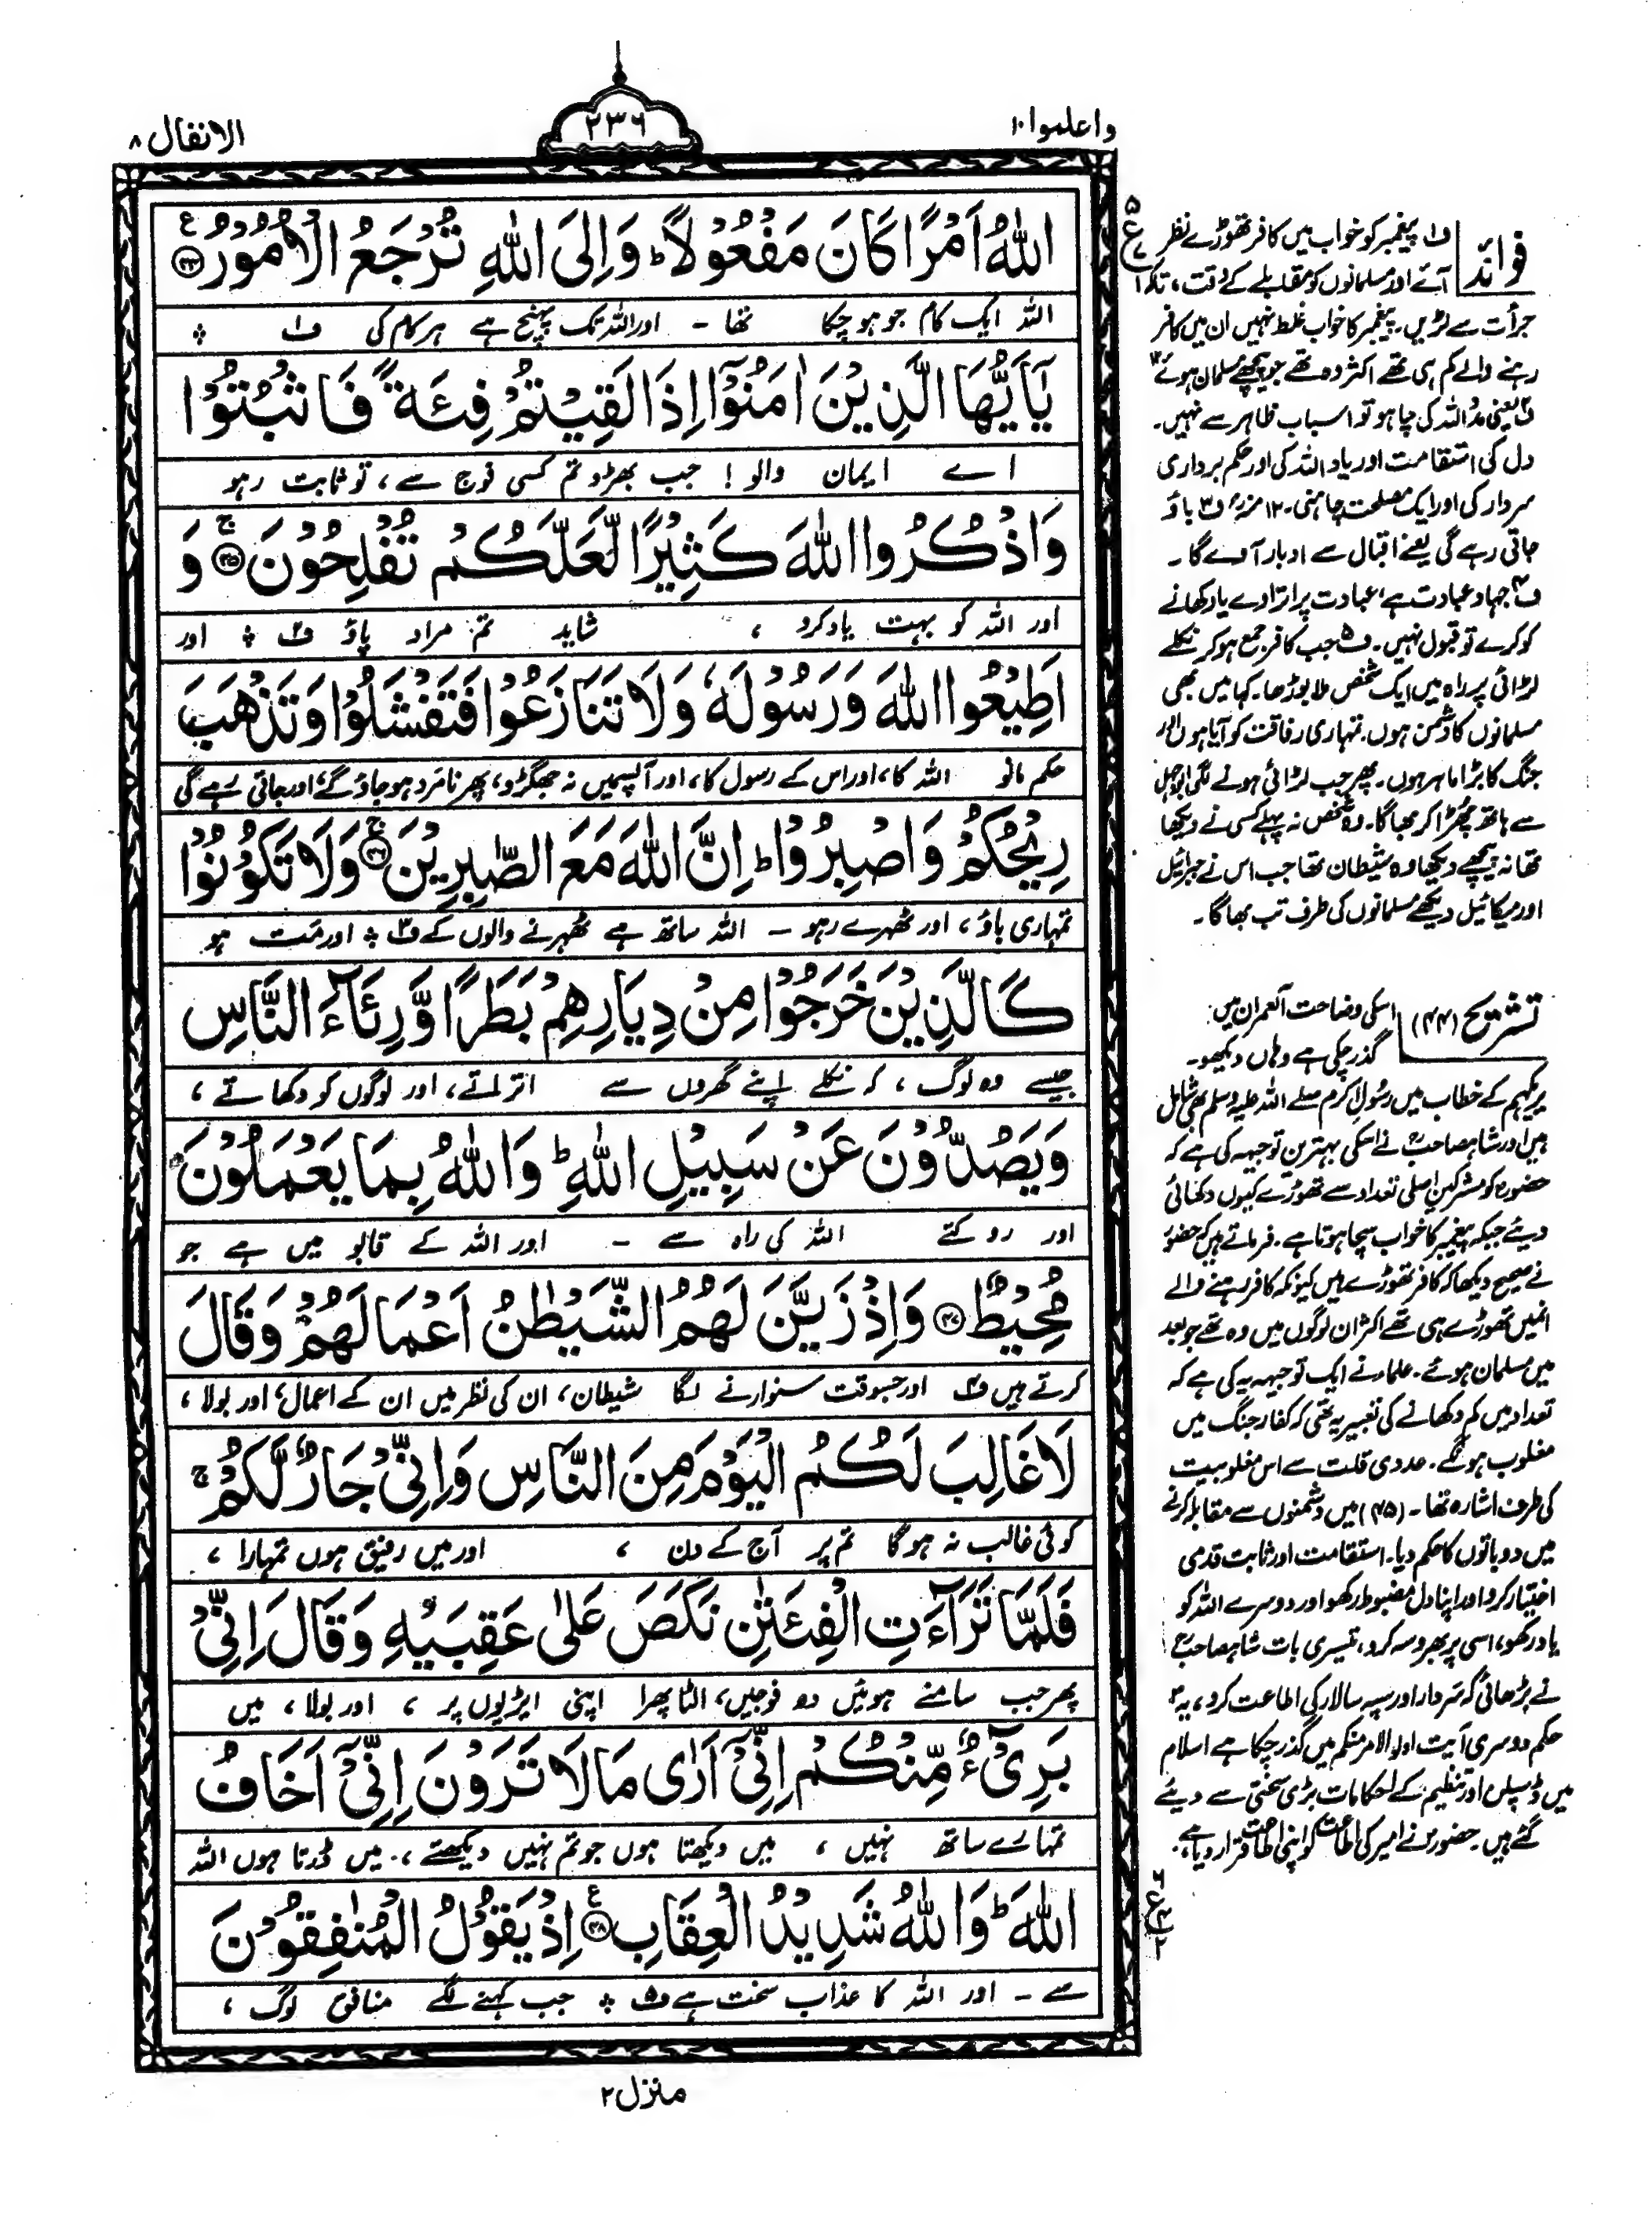 واعلموا ۱۰
۲۳۶
الانفال ۸
اللّٰهُ اَمْرًا كَانَ مَفْعُوْلًا ؕ وَاِلَى اللّٰهِ تُرْجَعُ الْاُمُوْرُ ۝۴۴
اللہ ایک کام جو ہو چکا تھا ۔ اور اللہ تک پہنچ ہے ہر کام کی ف۱
يٰۤاَيُّهَا الَّذِيْنَ اٰمَنُوْۤا اِذَا لَقِيْتُمْ فِئَةً فَاثْبُتُوْا
اے ایمان والو ! جب بھڑو تم کسی فوج سے ، تو ثابت رہو
وَاذْكُرُوا اللّٰهَ كَثِيْرًا لَّعَلَّكُمْ تُفْلِحُوْنَ ۝۴۵ وَ
اور اللہ کو بہت یاد کرو ، شاید تم مراد پاؤ ف۲ اور
اَطِيْعُوا اللّٰهَ وَرَسُوْلَهٗ وَلَا تَنَازَعُوْا فَتَفْشَلُوْا وَتَذْهَبَ
حکم مانو اللہ کا، اور اس کے رسول کا، اور آپسمیں نہ جھگڑو، پھر نامرد ہو جاؤ گے، اور جاتی رہے گی
رِيْحُكُمْ وَاصْبِرُوْا ؕ اِنَّ اللّٰهَ مَعَ الصّٰبِرِيْنَ ۝۴۶ وَلَا تَكُوْنُوْا
تمہاری باؤ ، اور ٹھہرے رہو ۔ اللہ ساتھ ہے ٹھہرنے والوں کے ف۳ اور مت ہو
كَالَّذِيْنَ خَرَجُوْا مِنْ دِيَارِهِمْ بَطَرًا وَّرِئَآءَ النَّاسِ
جیسے وہ لوگ ، کہ نکلے اپنے گھروں سے اتراتے، اور لوگوں کو دکھاتے ،
وَيَصُدُّوْنَ عَنْ سَبِيْلِ اللّٰهِ ؕ وَاللّٰهُ بِمَا يَعْمَلُوْنَ
اور روکتے اللہ کی راہ سے ۔ اور اللہ کے قابو میں ہے جو
مُحِيْطٌ ۝۴۷ وَاِذْ زَيَّنَ لَهُمُ الشَّيْطٰنُ اَعْمَالَهُمْ وَقَالَ
کرتے ہیں ف۴ اور جسوقت سنوارنے لگا شیطان، ان کی نظر میں ان کے اعمال، اور بولا ،
لَا غَالِبَ لَكُمُ الْيَوْمَ مِنَ النَّاسِ وَاِنِّىْ جَارٌ لَّكُمْ ۚ
کوئی غالب نہ ہو گا تم پر آج کے دن ، اور میں رفیق ہوں تمہارا ،
فَلَمَّا تَرَآءَتِ الْفِئَتٰنِ نَكَصَ عَلٰى عَقِبَيْهِ وَقَالَ اِنِّىْ
پھر جب سامنے ہوئیں دو فوجیں، الٹا پھرا اپنی ایڑیوں پر ، اور بولا ، میں
بَرِىْٓءٌ مِّنْكُمْ اِنِّىْۤ اَرٰى مَا لَا تَرَوْنَ اِنِّىْۤ اَخَافُ
تمہارے ساتھ نہیں ، میں دیکھتا ہوں جو تم نہیں دیکھتے ، میں ڈرتا ہوں اللہ
اللّٰهَ ؕ وَاللّٰهُ شَدِيْدُ الْعِقَابِ ۝۴۸ اِذْ يَقُوْلُ الْمُنٰفِقُوْنَ
سے ۔ اور اللہ کا عذاب سخت ہے ف۵ جب کہنے لگے منافق لوگ ،
منزل ۲
فوائد
ف۱ پیغمبر کو خواب میں کافر تھوڑے نظر
آئے اور مسلمانوں کو مقابلے کے وقت ، تاکہ
جرأت سے لڑیں ۔ پیغمبر کا خواب غلط نہیں ان میں کافر
رہنے والے کم ہی تھے اکثر وہ تھے جو پیچھے مسلمان ہوئے ۱۲
ف۲ یعنی مدد اللہ کی چاہو تو اسباب ظاہر سے نہیں ۔
دل کی استقامت اور یاد اللہ کی اور حکم برداری
سردار کی اور ایک مصلحت چاہئی ۔ ۱۲ منہ ف۳ باؤ
جاتی رہے گی یعنے اقبال سے ادبار آوے گا ۔
ف۴ جہاد عبادت ہے، عبادت پر اتراوے یا دکھانے
کو کرے تو قبول نہیں ۔ ف۵ جب کافر جمع ہو کر نکلے
لڑائی پر راہ میں ایک شخص ملا بوڑھا ۔ کہا میں بھی
مسلمانوں کا دشمن ہوں ۔ تمہاری رفاقت کو آیا ہوں اور
جنگ کا بڑا ماہر ہوں ۔ پھر جب لڑائی ہونے لگی ابوجہل
سے ہاتھ چھڑا کر بھاگا ۔ وہ شخص نہ پہلے کسی نے دیکھا
تھا نہ پیچھے دیکھا وہ شیطان تھا جب اس نے جبرائیل
اور میکائیل دیکھے مسلمانوں کی طرف تب بھاگا ۔
تشریح (۴۴) اسکی وضاحت آل عمران میں
گذر چکی ہے وہاں دیکھو ۔
یریکہم کے خطاب میں رسول اکرم صلے اللہ علیہ وسلم بھی شامل
ہیں اور شاہ صاحبؒ نے اسکی بہترین توجیہہ کی ہے کہ
حضورؐ کو مشرکین اصلی تعداد سے تھوڑے کیوں دکھائی
دیئے جبکہ پیغمبر کا خواب سچا ہوتا ہے ۔ فرماتے ہیں کہ حضورؐ
نے صحیح دیکھا کہ کافر تھوڑے ہیں کیونکہ کافر رہنے والے
انمیں تھوڑے ہی تھے اکثر ان لوگوں میں وہ تھے جو بعد
میں مسلمان ہوئے ۔ علماء نے ایک توجیہہ یہ کی ہے کہ
تعداد میں کم دکھانے کی تعبیر یہ تھی کہ کفار جنگ میں
مغلوب ہونگے ۔ عددی قلت سے اس مغلوبیت
کی طرف اشارہ تھا ۔ (۴۵) میں دشمنوں سے مقابلہ کرنے
میں دو باتوں کا حکم دیا ۔ استقامت اور ثابت قدمی
اختیار کرو اور اپنا دل مضبوط رکھو اور دوسرے اللہ کو
یاد رکھو، اسی پر بھروسہ کرو، تیسری بات شاہ صاحبؒ
نے بڑھائی کہ سردار اور سپہ سالار کی اطاعت کرو ، یہ
حکم دوسری آیت اولو الامر منکم میں گذر چکا ہے اسلام
میں ڈسپلن اور تنظیم کے احکامات بڑی سختی سے دیئے
گئے ہیں ۔ حضورؐ نے امیر کی اطاعت کو اپنی اطاعت قرار دیا ہے ،